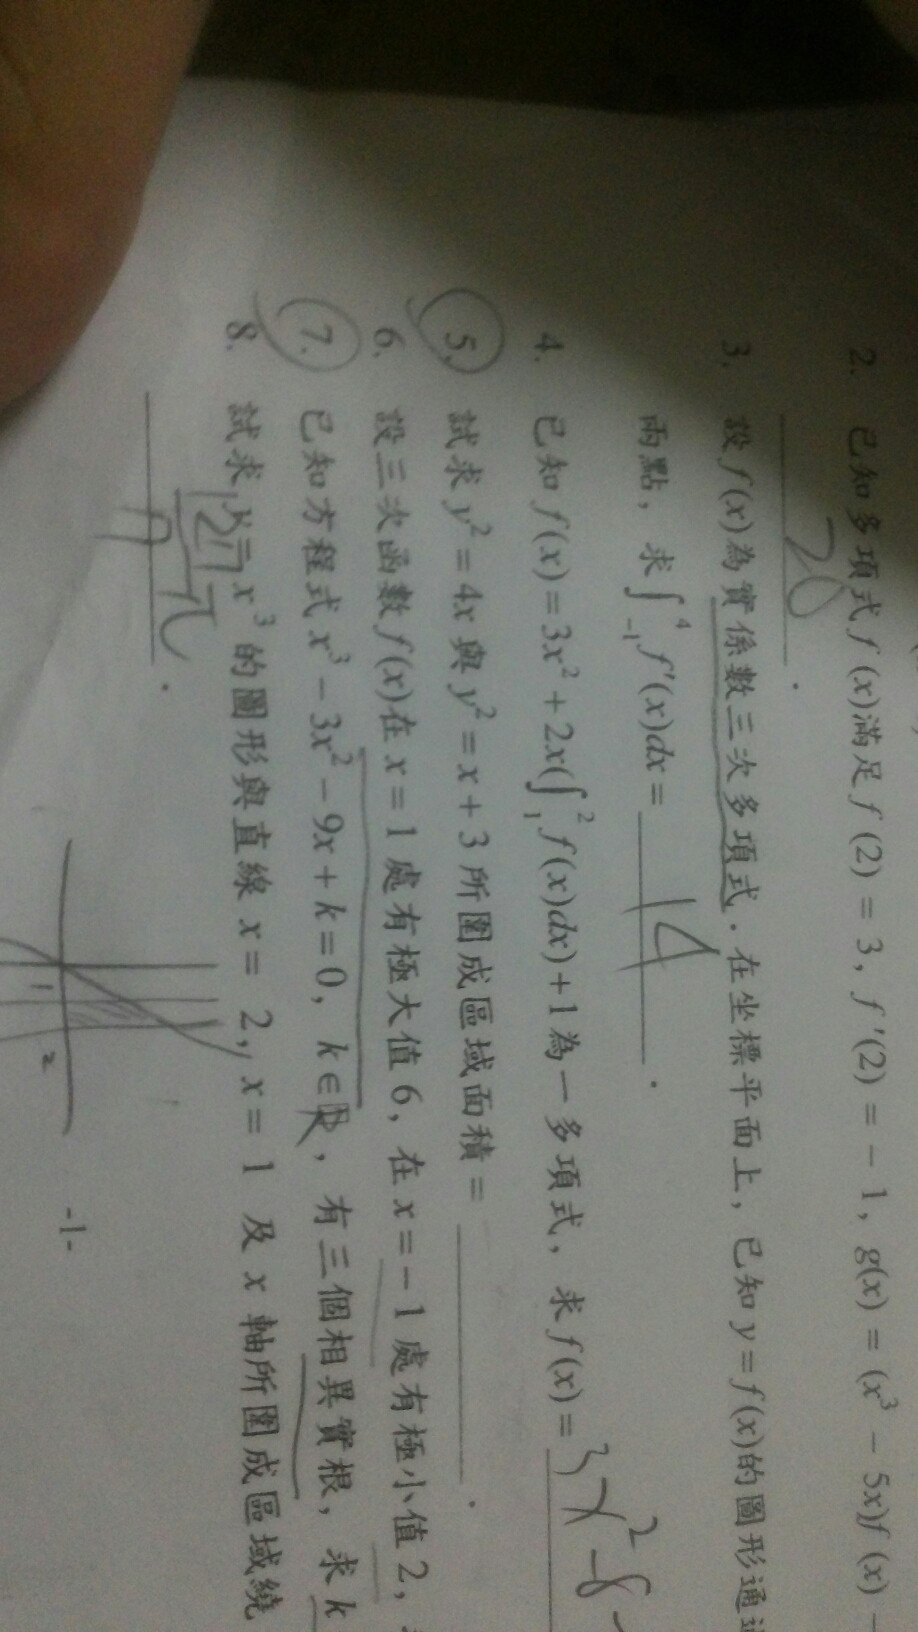 2. 已知多項式 f(x)滿足 f(2) = 3, f'(2) = -1, g(x) = (x³ - 5x)f(x) -
26
3. 設 f(x)為實係數三次多項式．在坐標平面上，已知 y = f(x)的圖形通過
兩點，求∫₋₁⁴ f'(x)dx = 14 ．
4. 已知 f(x) = 3x² + 2x(∫₁² f(x)dx) + 1 為一多項式，求 f(x) = 3x² - 8
5. 試求 y² = 4x 與 y² = x + 3 所圍成區域面積 = ．
6. 設三次函數 f(x)在 x = 1 處有極大值 6，在 x = -1 處有極小值 2，
7. 已知方程式 x³ - 3x² - 9x + k = 0，k ∈ R，有三個相異實根，求 k
8. 試求 y = x³ 的圖形與直線 x = 2, x = 1 及 x 軸所圍成區域繞
127/7 π ．
1 2
-1-